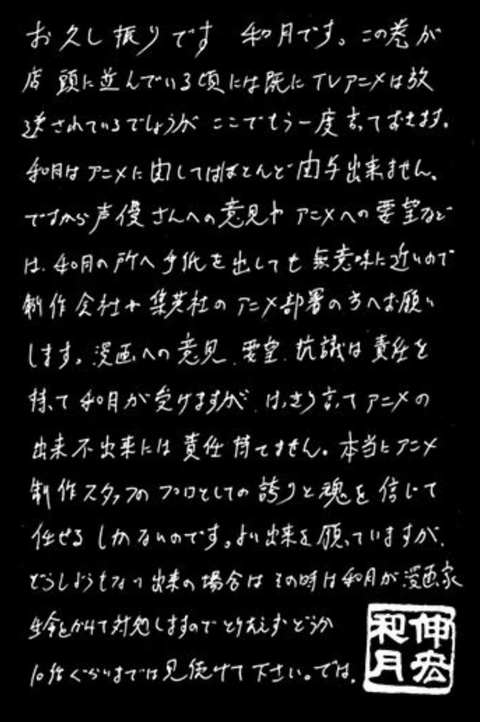 お久し振りです 和月です。この巻が
店頭に並んでいる頃には既にTVアニメは放
送されているでしょうが ここでもう一度言っておきます。
和月はアニメに関してはほとんど関与出来ません。
ですから声優さんへの意見や アニメへの要望など
は、和月の所へ手紙を出しても無意味に近いので
制作会社や集英社のアニメ部署の方へお願い
します。漫画への意見、要望、抗議は責任を
持って和月が受けますが、はっきり言ってアニメの
出来不出来には責任持てません。本当にアニメ
制作スタッフのプロとしての誇りと魂を信じて
任せるしかないのです。よい出来を願っていますが、
どうしようもない出来の場合は その時は和月が漫画家
生命をかけて対処しますので とりあえずどうか
10話ぐらいまでは見続けて下さい。では。
伸宏
和月